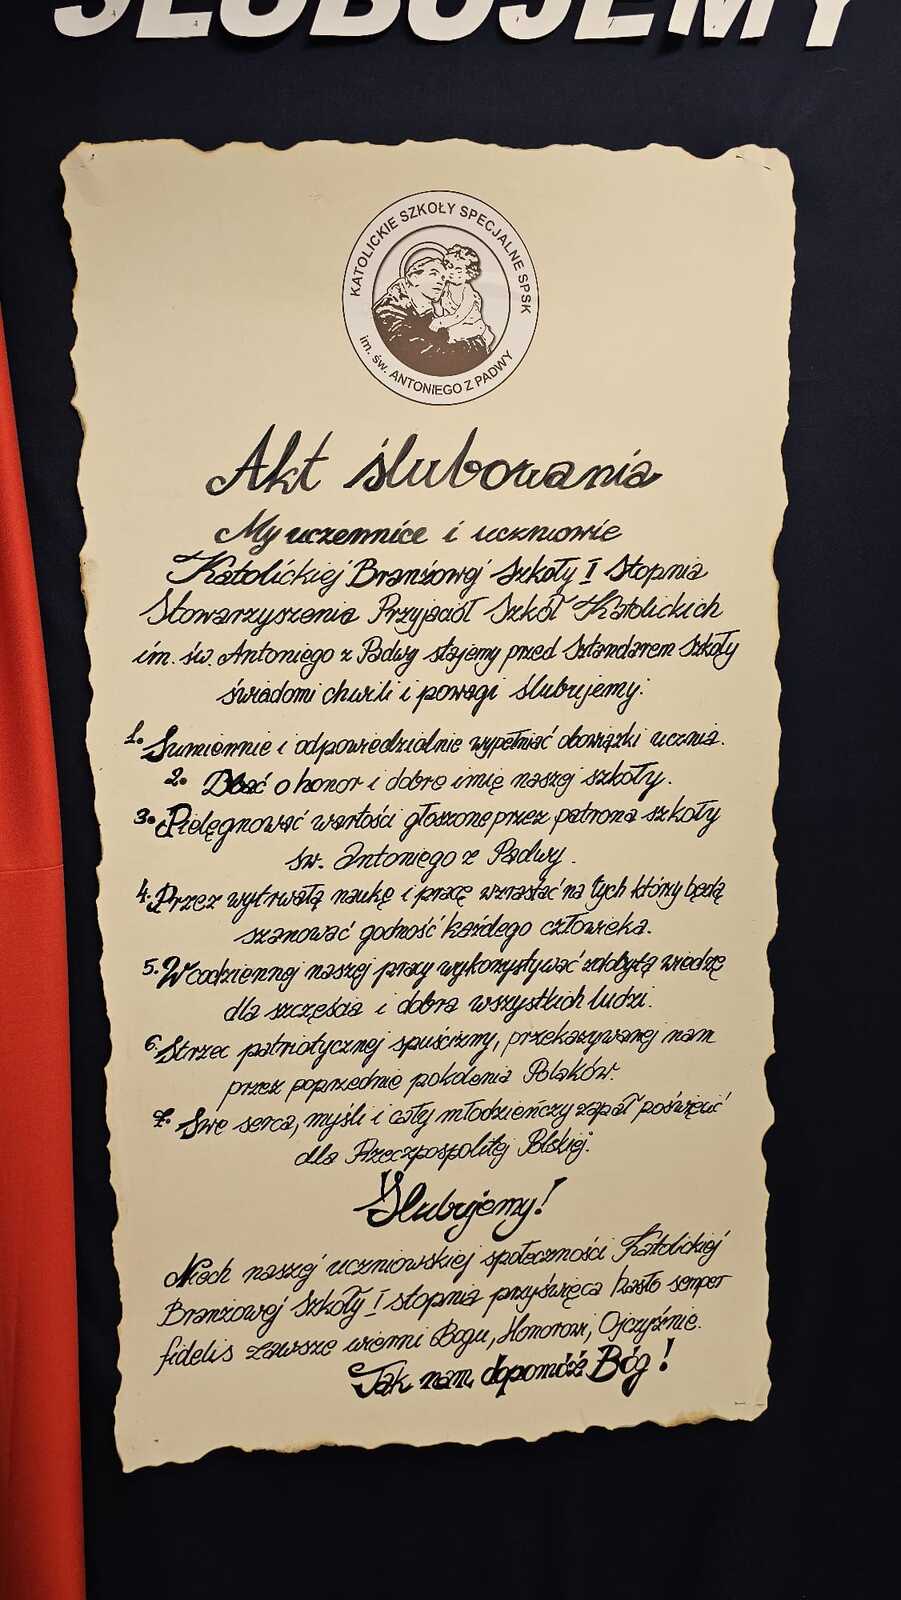 ŚLUBUJEMY
KATOLICKIE SZKOŁY SPECJALNE SPSK
im. św. ANTONIEGO Z PADWY
Akt ślubowania
My uczennice i uczniowie
Katolickiej Branżowej Szkoły I Stopnia
Stowarzyszenia Przyjaciół Szkół Katolickich
im. św. Antoniego z Padwy stajemy przed Sztandarem Szkoły
świadomi chwili i powagi ślubujemy:
1. Sumiennie i odpowiedzialnie wypełniać obowiązki ucznia.
2. Dbać o honor i dobre imię naszej szkoły.
3. Pielęgnować wartości głoszone przez patrona szkoły
św. Antoniego z Padwy.
4. Przez wytrwałą naukę i pracę wzrastać na tych którzy będą
szanować godność każdego człowieka.
5. W codziennej naszej pracy wykorzystywać zdobytą wiedzę
dla szczęścia i dobra wszystkich ludzi.
6. Strzec patriotycznej spuścizny, przekazywanej nam
przez poprzednie pokolenia Polaków.
7. Swe serca, myśli i cały młodzieńczy zapał poświęcić
dla Rzeczpospolitej Polskiej.
Ślubujemy!
Niech naszej uczniowskiej społeczności Katolickiej
Branżowej Szkoły I stopnia przyświeca hasło semper
fidelis zawsze wierni Bogu, Honorowi, Ojczyźnie.
Tak nam dopomóż Bóg!